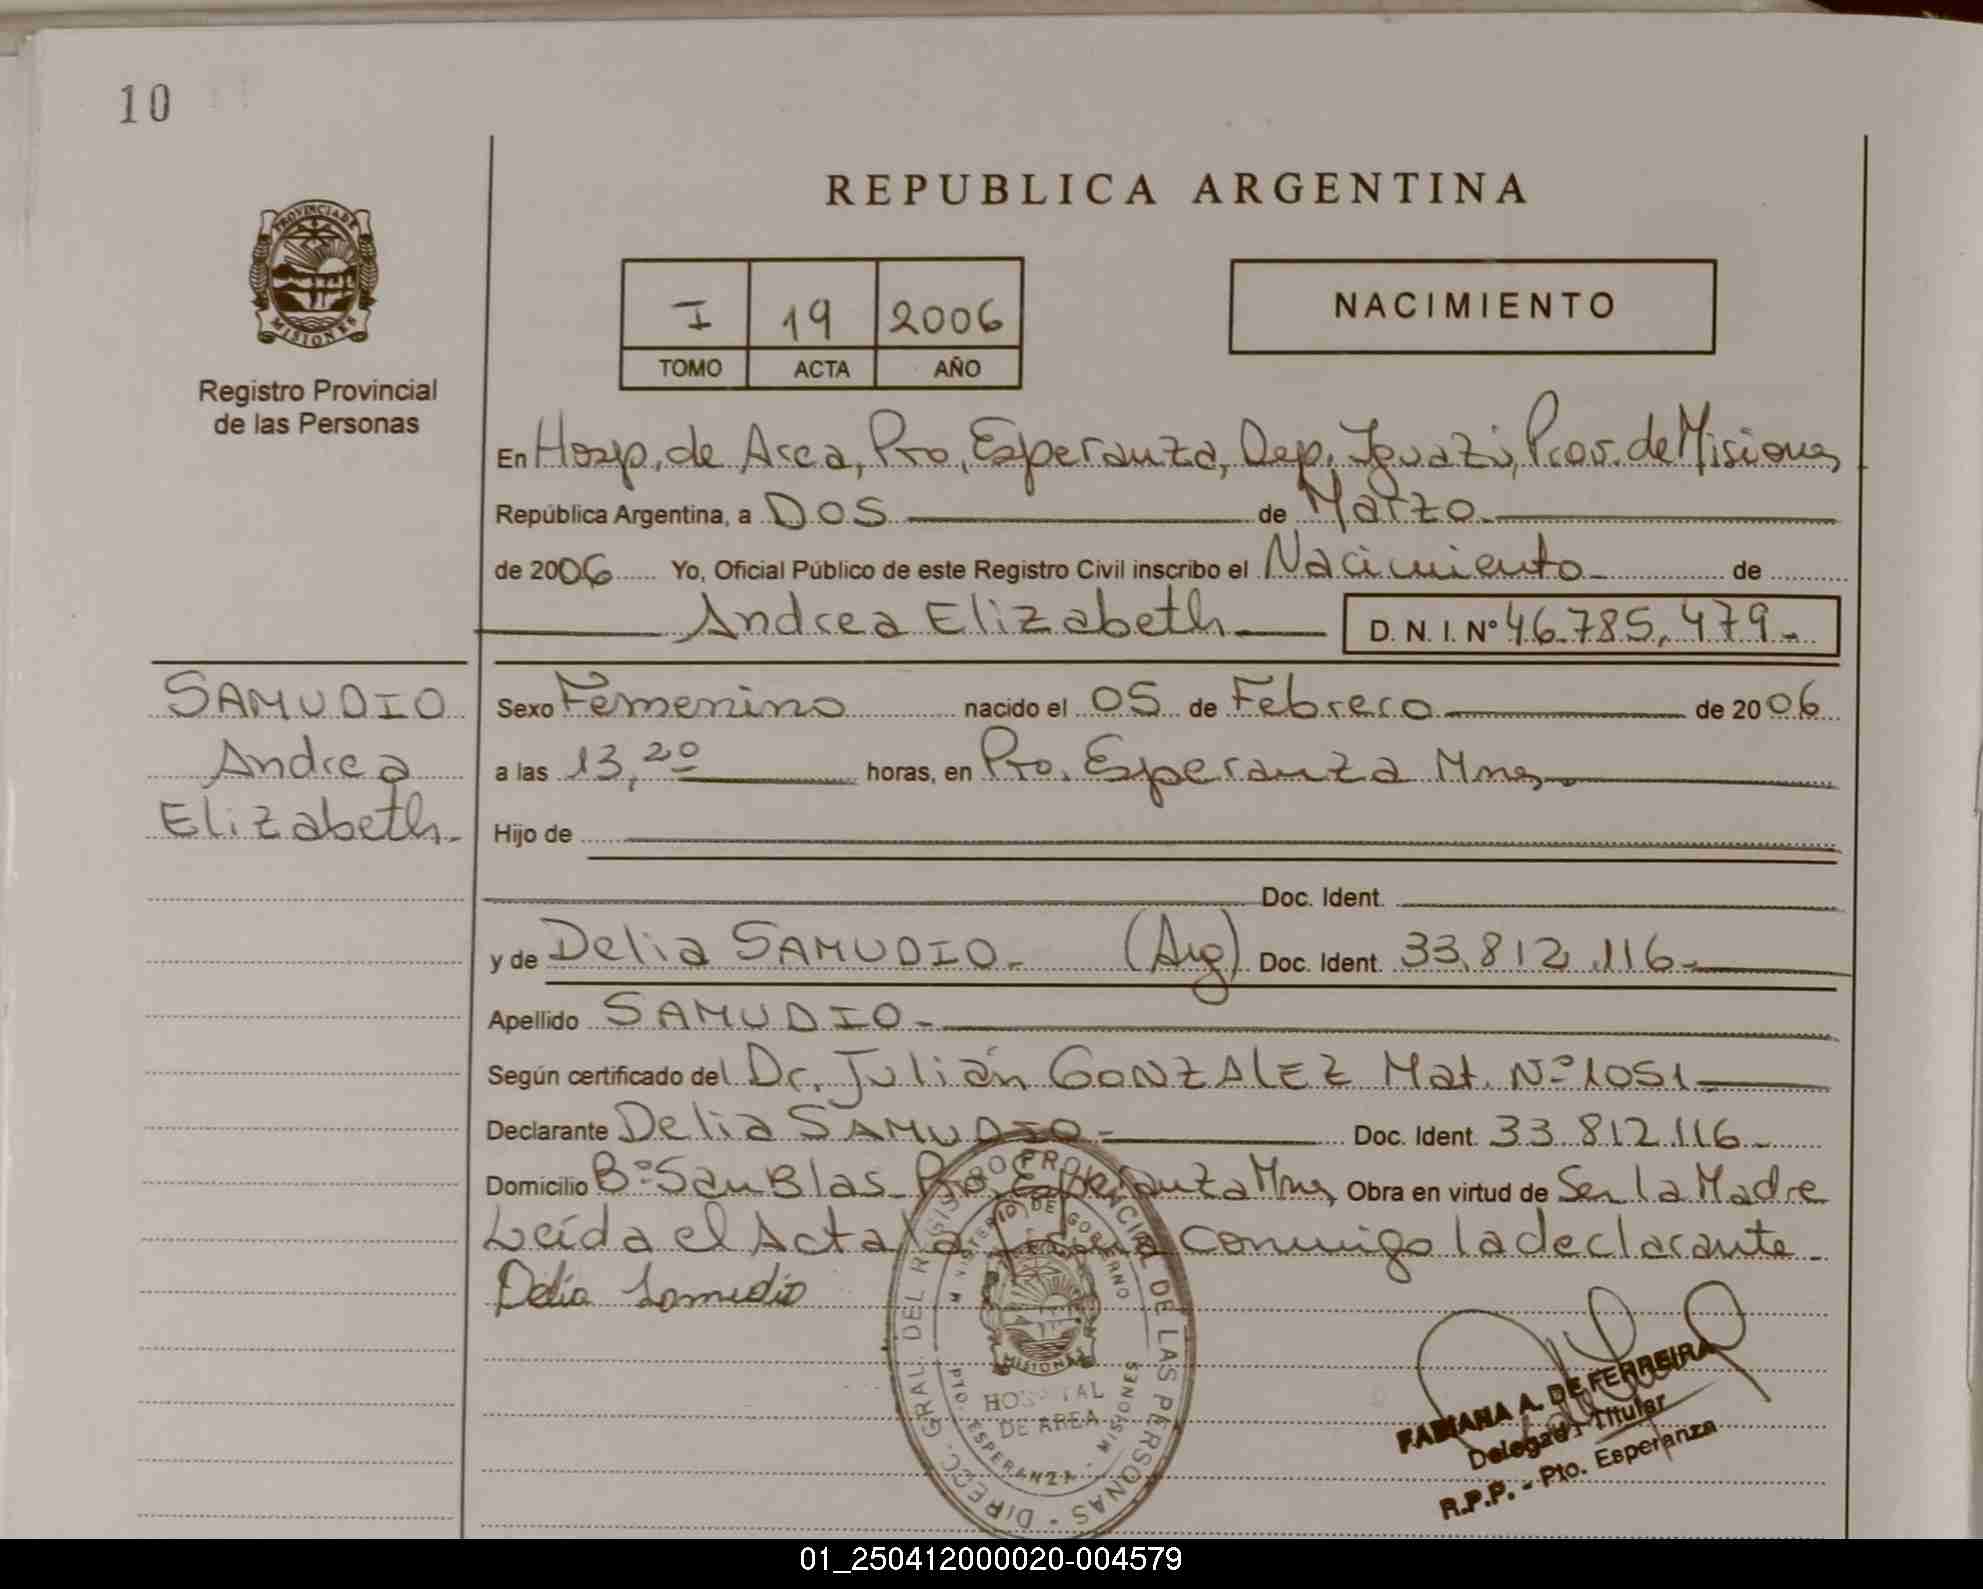 10
REPUBLICA ARGENTINA
PROVINCIA DE MISIONES
Registro Provincial
de las Personas
I 19 2006
TOMO ACTA AÑO
NACIMIENTO
En Hosp. de Area, Pto. Esperanza, Dep. Iguazú, Prov. de Misiones
República Argentina, a DOS de Marzo
de 2006 Yo, Oficial Público de este Registro Civil inscribo el Nacimiento de
Andrea Elizabeth D. N. I. Nº 46.785.479.-
SAMUDIO
Andrea
Elizabeth.-
Sexo Femenino nacido el 05 de Febrero de 2006
a las 13,20 horas, en Pto. Esperanza Mnes.
Hijo de
Doc. Ident.
y de Delia SAMUDIO.- (Arg) Doc. Ident. 33.812.116.-
Apellido SAMUDIO.-
Según certificado del Dr. Julián GONZALEZ Mat. Nº 1051
Declarante Delia SAMUDIO.- Doc. Ident. 33.812.116.-
Domicilio Bº San Blas Pto. Esperanza Mnes, Obra en virtud de Ser la Madre
Leída el Acta la firma conmigo la declarante
Delia Samudio
DIRECC. GRAL. DEL REGISTRO PROVINCIAL DE LAS PERSONAS
MINISTERIO DE GOBIERNO
MISIONES
HOSPITAL
DE AREA
PTO. ESPERANZA - MISIONES
FABIANA A. DE FERREIRA
Delegada Titular
R.P.P. - Pto. Esperanza
01_250412000020-004579